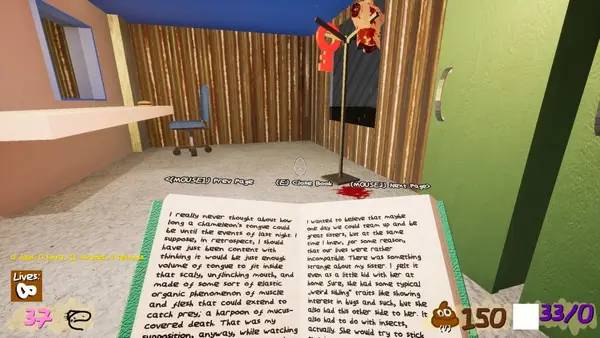 <(MOUSE1) Prev Page
(E) Close Book
(MOUSE2) Next Page>
I really never thought about how
long a chameleon's tongue could
be until the events of last night. I
suppose, in retrospect, I should
have just been content with
thinking it would be just enough
volume of tongue to fit inside
that scaly, unflinching mouth, and
made of some sort of elastic
organic phenomenon of muscle
and flesh that could extend to
catch prey; a harpoon of mucus-
covered death. That was my
supposition, anyway, while watching
I wanted to believe that maybe
one day we could team up and be
great sisters, but at the same
time I knew, for some reason,
that our lives were rather
incompatible. There was something
strange about my sister. I felt it
even as a little kid with her at
home. Sure, she had some typical
"weird sibling" traits like showing
interest in bugs and such, but she
also had this other side to her. It
also had to do with insects,
actually. She would try to stick
Lives:
37
150
33/0